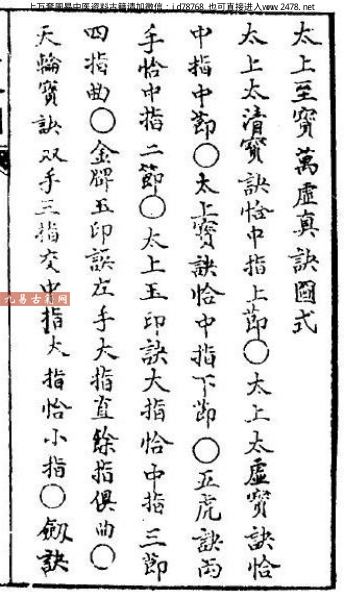 上万套周易中医资料古籍请加微信：jd78768 也可直接进入www.2478.net
太上至寳萬虛真訣圖式
太上太清寳訣恰中指上節〇太上太虛寳訣恰
中指中節〇太上寳訣恰中指下節〇五虎訣両
手恰中指二節〇太上玉印訣大指恰中指三節
四指曲〇金牌玉印訣左手大指直餘指俱曲〇
天輪寳訣双手三指交中指大指恰小指〇劔訣
九易古籍网